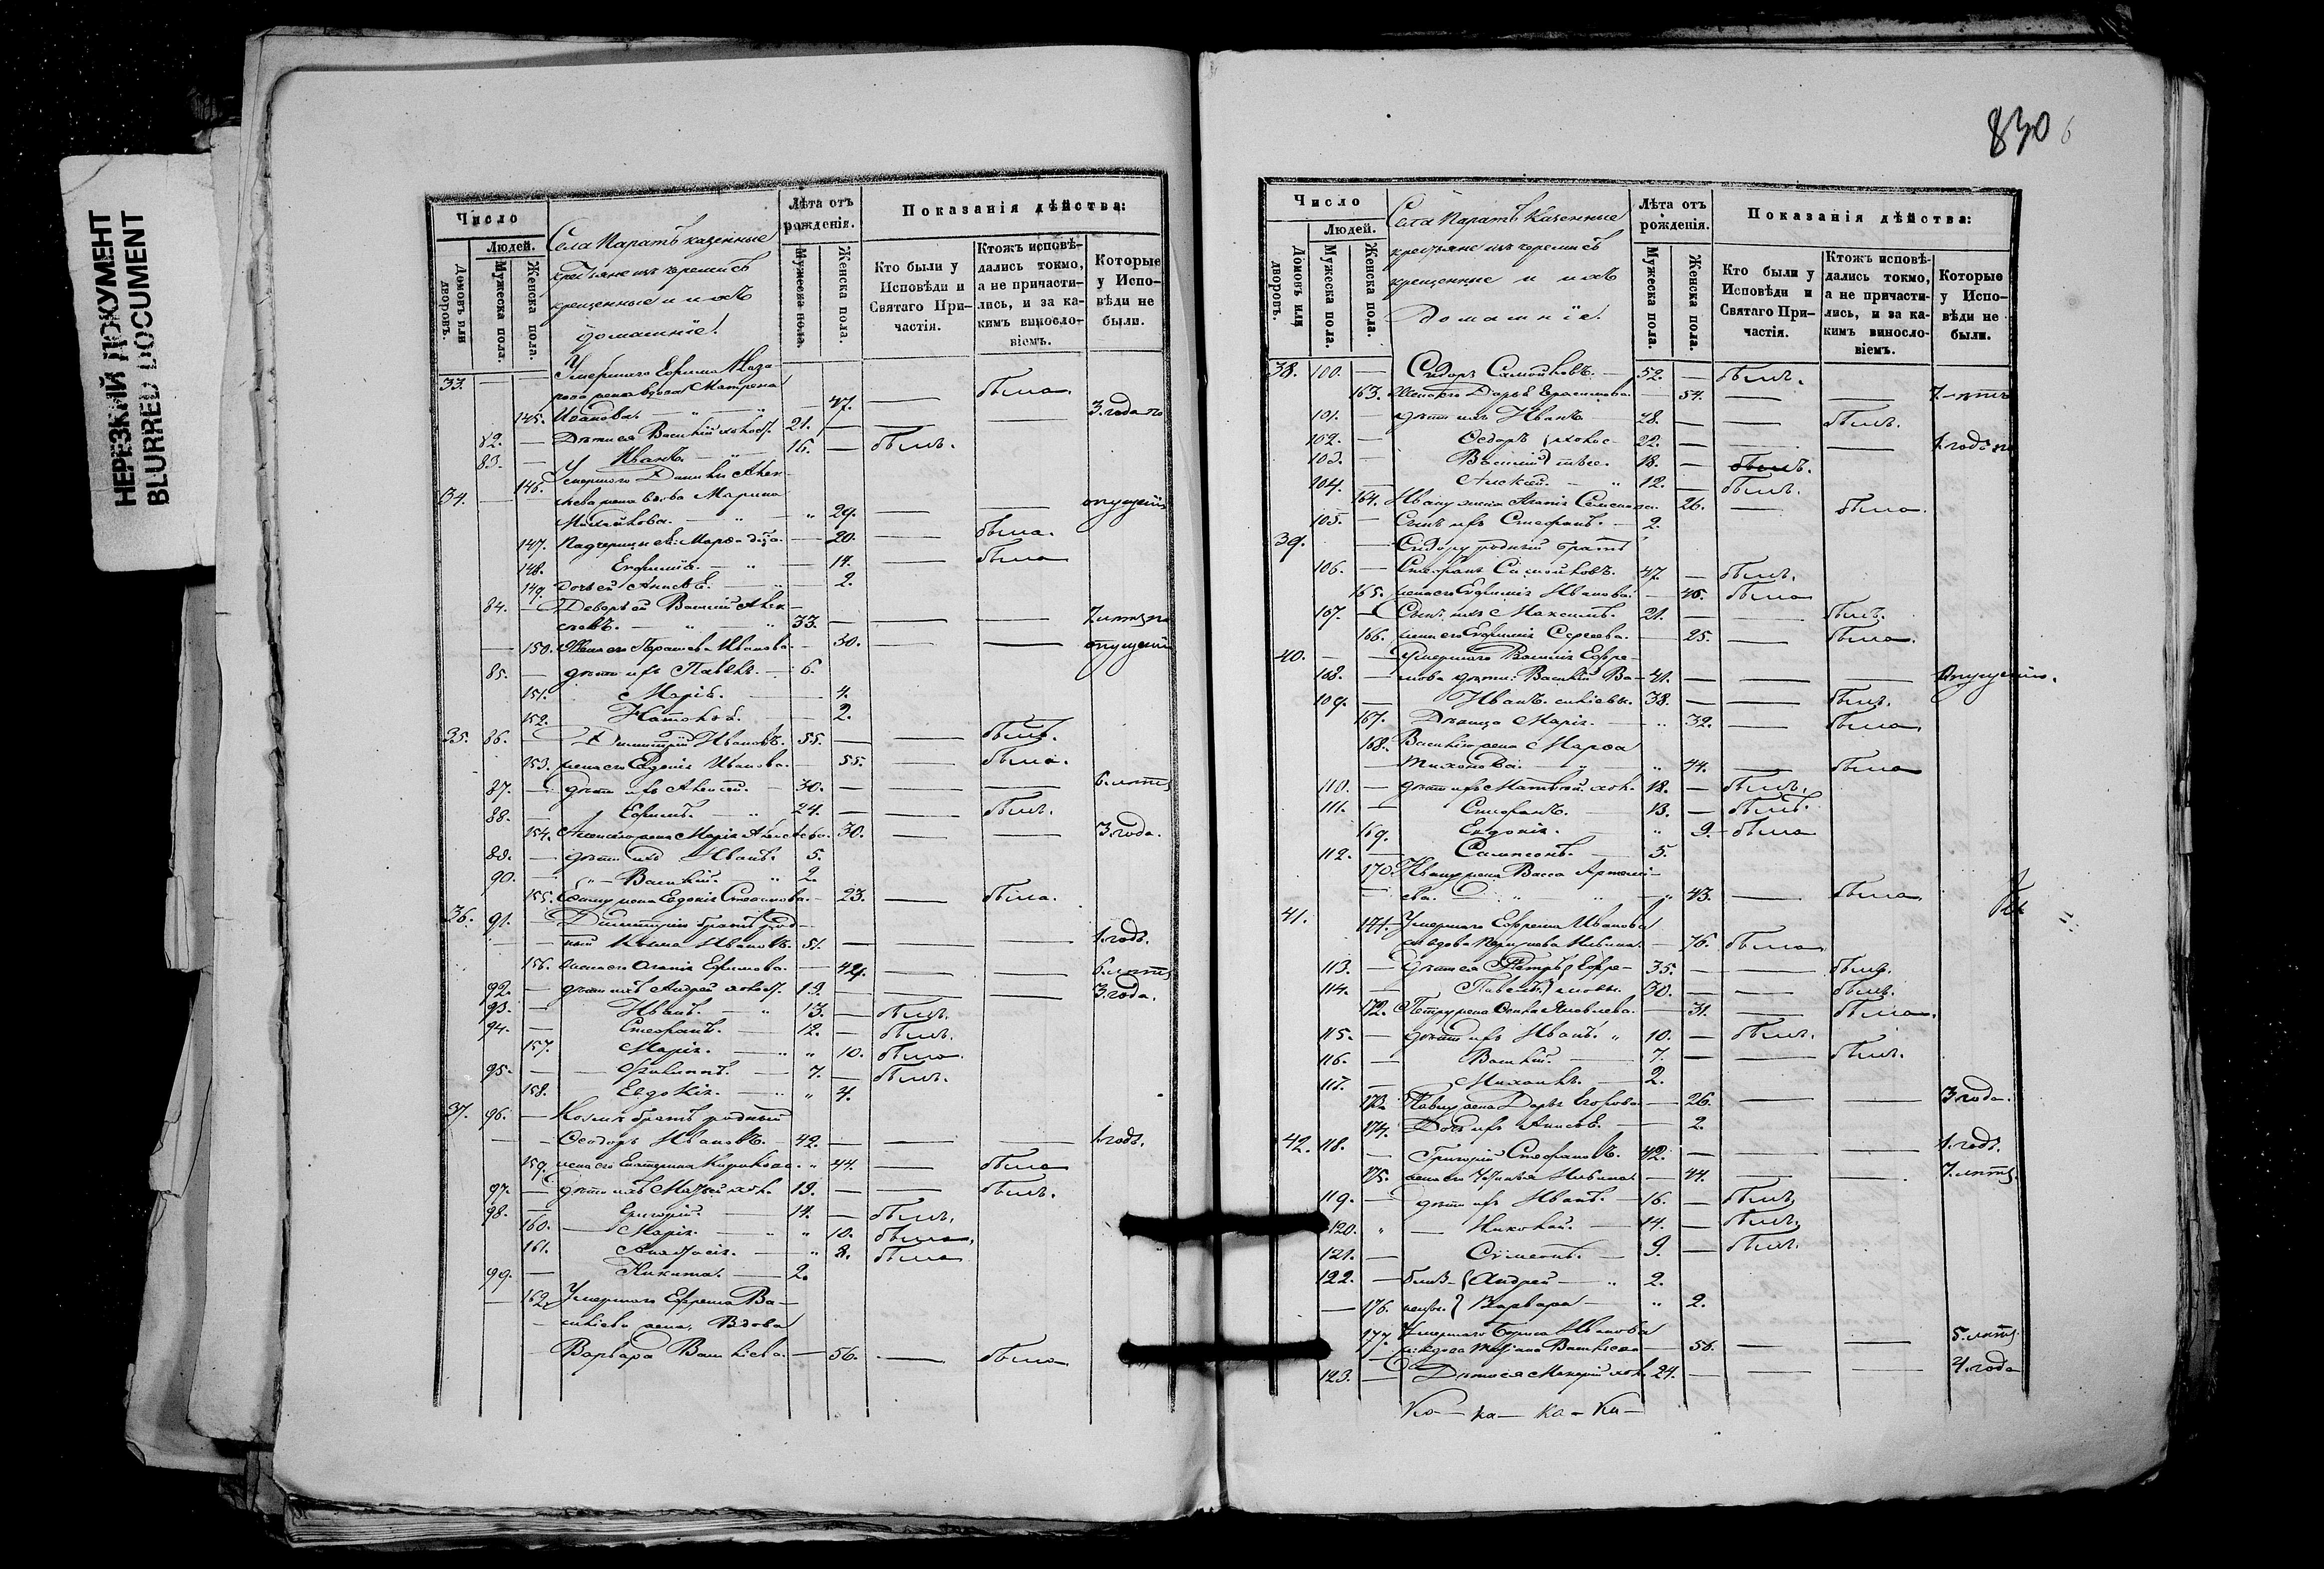 НЕРЕЗКИЙ ДОКУМЕНТ
BLURRED DOCUMENT
Число
Людей.
Домовъ или дворовъ.
Мужеска пола.
Женска пола.
Села Паратъ казенные
крестьяне изъ черемисъ
крещенные и ихъ
домашніе.
Лѣта отъ рожденія.
Мужеска пола.
Женска пола.
Показанія дѣйства:
Кто были у Исповѣди и Святаго Причастія.
Ктожъ исповѣдались токмо, а не причастились, и за какимъ винословіемъ.
Которые у Исповѣди не были.
33. — — Умершаго Ефима
жена вдова Матрена 47. — была.
145. Иванова. 3. года
82. — Дѣти ея Василій холост. 21. —
83. — Иванъ. 16. — былъ.
146. Умершаго
34. — жена вдова Марина
29. — —
147. Падчерицы ея: Марѳа — 20. — была.
148. Евфимія. — 14. — была
149. дочь ей Анисья. 2.
84. — Деверь ей Василій Алек-
33. — — — 7. лѣтъ
150. Жена его Парасковья Иванова. 30. — —
85. — дѣти ихъ Павелъ. 6.
151. Марія. — 4.
152. Наталья. — 2.
35. 86. Димитрій Ивановъ. 55. — — былъ.
153. жена его Евдокія Иванова. 55. — была.
87. — дѣти ихъ Алексѣй. 30. — — — 6. лѣтъ
88. — Ефимъ. 24. — — былъ.
154. жена Марія 30. — — 3. года.
89. — дѣти ихъ Иванъ. 5.
90. — Василій. 2.
155. жена Евдокія 23. — была.
36. 91. — Димитрію братъ род-
ный Козма Ивановъ. 51. — — 1. годъ.
156. жена его Агаѳія Ефимова. — — 6. лѣтъ
92. — дѣти ихъ Андрей холост. 19. — — 3. года.
93. — Иванъ. 13. — былъ.
94. — Стефанъ. 12. — былъ.
157. Марія. 10. была.
95. — Филиппъ. 7. — былъ.
158. Евдокія. 4.
37. 96. — Козмѣ братъ родный
Ѳеодоръ Ивановъ. 42. — — — 1. годъ.
159. жена его Екатерина 44. — была
97. — дѣти ихъ Матвей хол. 19. — — былъ.
98. — Григорій. 14. — былъ.
160. — Марія. 10. была.
161. Анастасія. 8. была
99. — Никита. 2.
162. Умершаго Ефрема Ва-
сильева жена, Вдова
Варвара Васильева. — 56. — была
830
6
Число
Людей.
Домовъ или дворовъ.
Мужеска пола.
Женска пола.
Села Паратъ казенные
крестьяне изъ черемисъ
крещенные и ихъ
Домашніе.
Лѣта отъ рожденія.
Мужеска пола.
Женска пола.
Показанія дѣйства:
Кто были у Исповѣди и Святаго Причастія.
Ктожъ исповѣдались токмо, а не причастились, и за какимъ винословіемъ.
Которые у Исповѣди не были.
38. 100. — Сидоръ Самойловъ. 52. — былъ.
163. Жена его Дарья Герасимова. 54. — — 7. лѣтъ
101. — дѣти ихъ Иванъ 28. — — былъ.
102. — Ѳедоръ } холос- 22. — — — 1. годъ
103. — Василій } тые. 18. — былъ.
104. — Алексѣй. 12. — былъ.
164. Ивану жена Агаѳія Семенова. 26. — была.
105. — Сынъ ихъ Стефанъ. 2.
39. — Сидору родный братъ
106. — Стефанъ Самойловъ. 47. — былъ.
165. жена его Евфимія Иванова. 45. была
107. — Сынъ ихъ Максимъ. 21. — — былъ.
166. жена его Евфимія Сергеева. 25. — была.
40. — Умершаго Василія Ефре-
108. — мова дѣти: Василій Ва- 41. — — —
109. — Иванъ сильевы. 38. — — былъ.
167. Дѣвица Марія. 32. — была
168. Василію жена Марѳа
Тихонова. 44. — была
110. — дѣти ихъ Матвѣй хол. 18. — былъ.
111. — Стефанъ. 13. — былъ.
169. Евдокія. 9. — была
112. — Сампсонъ. 5.
170. Ивану жена Васса Артемі-
ева. 43. — была
41. 171. Умершаго Ефрема Иванова
вдова 76. была.
113. — Дѣти ея Петръ } Ефре- 35. — — былъ.
114. — Павелъ } мовы. 30. — — былъ.
172. Петру жена Яковлева. 31. — была.
115. — дѣти ихъ Иванъ. 10. — былъ.
116. — Василій. 7. — — былъ.
117. — Михаилъ. 2.
173. Павлу жена Дарья Егорова 26. — — 3 года.
174. Дочь ихъ Анисья. 2.
42. 118. — Григорій Стефановъ. 42. — — — 1. годъ.
175. жена его 44. — — 7. лѣтъ.
119. — дѣти ихъ Иванъ. 16. — былъ.
120. — Николай. 14. — былъ.
121. — Симеонъ. 9. — былъ.
122. — близ- { Андрей — 2.
176. нецы. } Варвара — 2.
177. Умершаго Бориса Иванова
вдова Васильева 56. — — 5. лѣтъ.
123. — Дѣти ея хол. 24. — — — 4. года
Ко — ка — ка — ка —